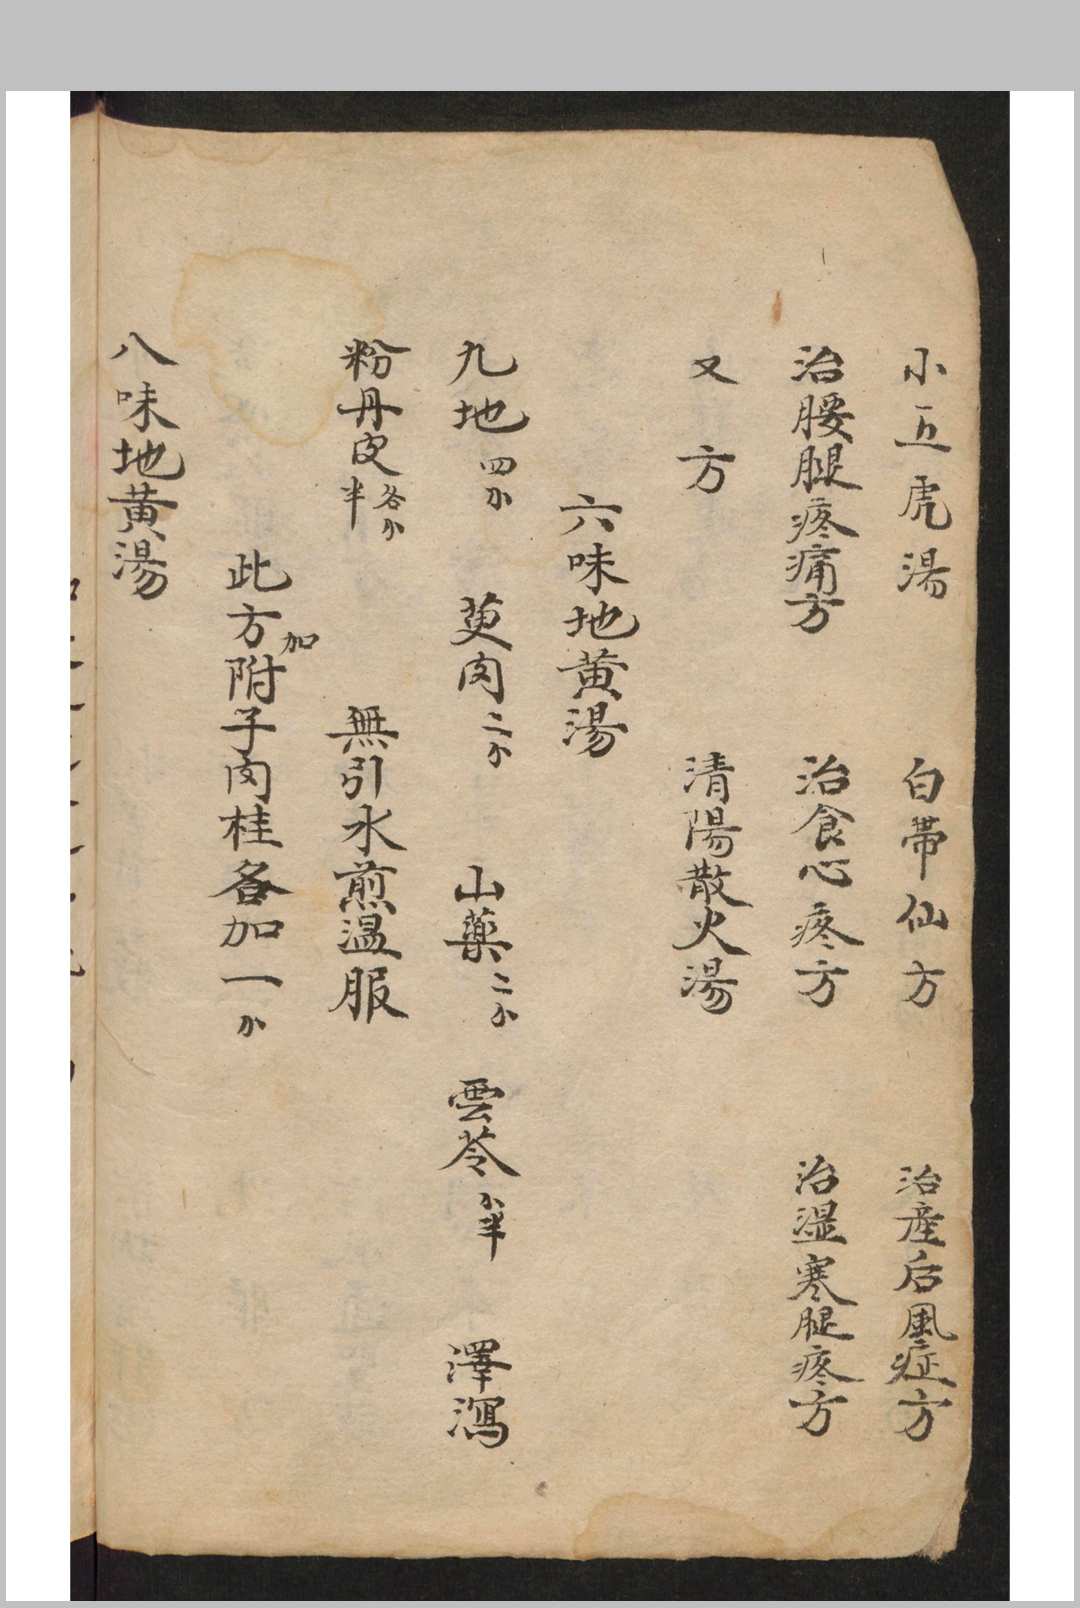 小五虎湯 白帶仙方 治産后風症方
治腰腿疼痛方 治食心疼方 治湿寒腿疼方
又方 清陽散火湯
六味地黄湯
九地四㕛 萸肉二㕛 山藥二㕛 雲苓㕛半 澤瀉
粉丹皮各㕛半 無引水煎温服
此方加附子肉桂各加一㕛
八味地黄湯